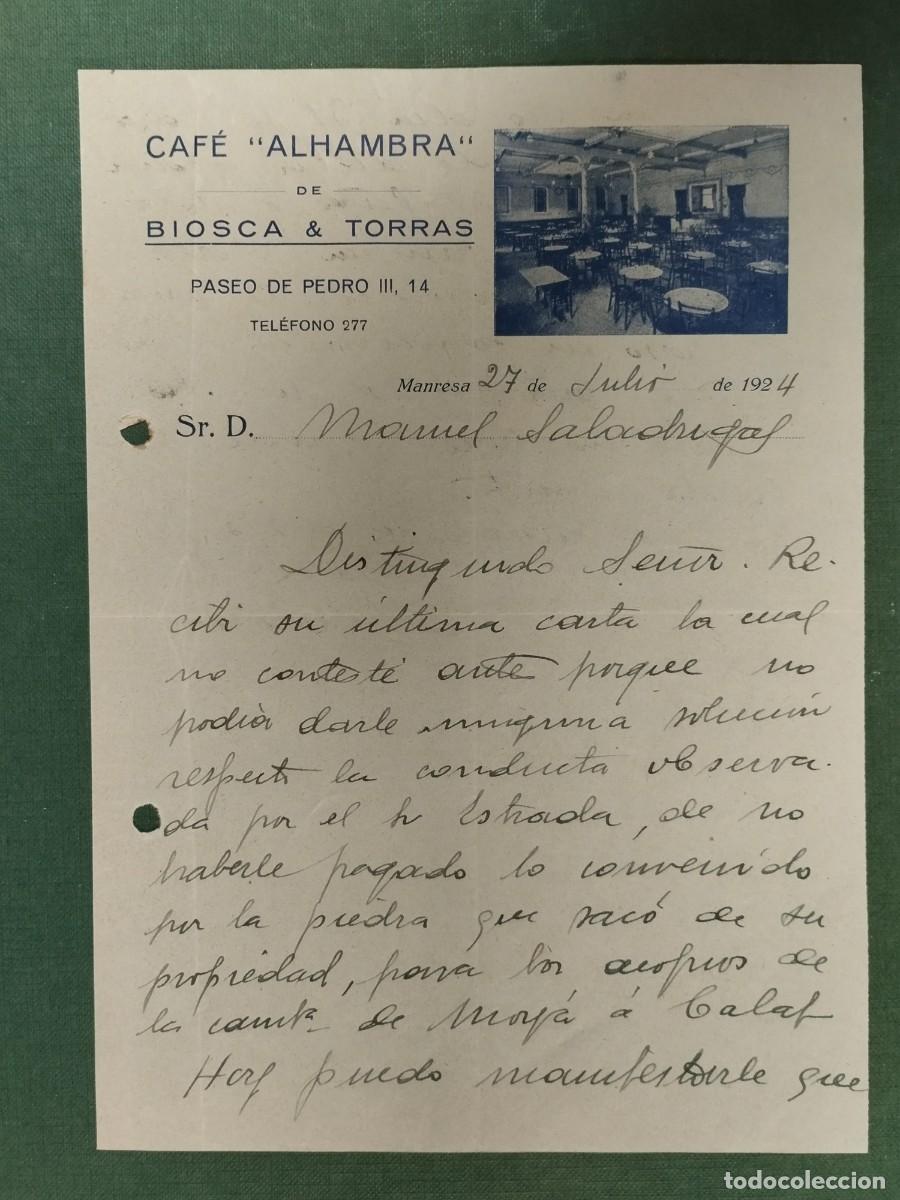 CAFÉ "ALHAMBRA"
DE
BIOSCA & TORRAS
PASEO DE PEDRO III, 14
TELÉFONO 277
Manresa 27 de Julio de 1924
Sr. D. Manuel Saladrigas
Distinguido Señor. Re-
cibi su última carta la cual
no contesté antes porque no
podia darle ninguna solución
respecto la conducta observa-
da por el Sr Estrada, de no
haberle pagado lo convenido
por la piedra que sacó de su
propiedad, para los acopios de
la carretª de Moyá á Calaf
Hoy puedo manifestarle que
todocoleccion.net